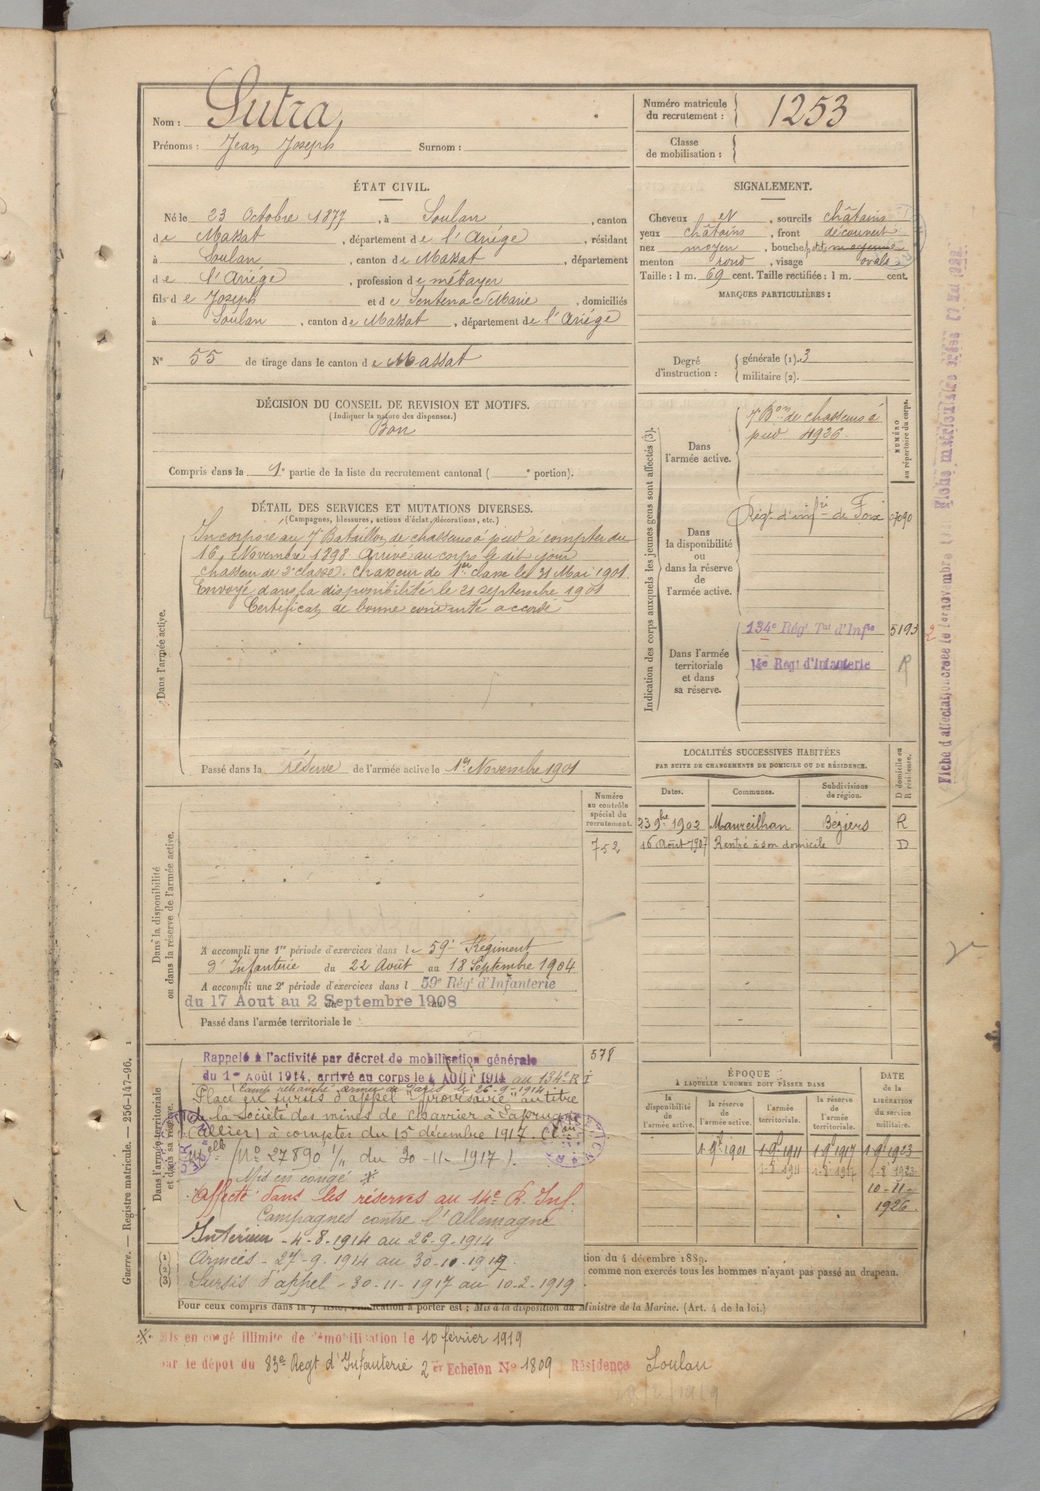 Nom : Sutra
Prénoms : Jean Joseph Surnom :
Numéro matricule du recrutement : 1253
Classe de mobilisation :
ÉTAT CIVIL.
Né le 23 Octobre 1877, à Soulan, canton
de Massat, département de l'Ariége, résidant
à Soulan, canton de Massat, département
de l'Ariége, profession de métayer
fils de Joseph et de Sentenac Marie, domiciliés
à Soulan, canton de Massat, département de l'Ariége
N° 55 de tirage dans le canton de Massat
SIGNALEMENT.
Cheveux et, sourcils châtains
yeux châtains, front découvert
nez moyen, bouche petite moyenne
menton rond, visage ovale
Taille : 1 m. 69 cent. Taille rectifiée : 1 m. cent.
MARQUES PARTICULIÈRES :
Degré d'instruction : générale (1). 3
militaire (2).
DÉCISION DU CONSEIL DE REVISION ET MOTIFS.
(Indiquer la nature des dispenses.)
Bon
Compris dans la 1e partie de la liste du recrutement cantonal ( e portion).
DÉTAIL DES SERVICES ET MUTATIONS DIVERSES.
(Campagnes, blessures, actions d'éclat, décorations, etc.)
Dans l'armée active.
Incorporé au 7e Bataillon de chasseurs à pied à compter du
16 Novembre 1898. Arrivé au corps le dit jour
chasseur de 2e classe. Chasseur de 1ère classe le 31 Mai 1901.
Envoyé dans la disponibilité le 21 septembre 1901
Certificat de bonne conduite accordé
Passé dans la réserve de l'armée active le 1er Novembre 1901
Indication des corps auxquels les jeunes gens sont affectés (3).
NUMÉRO au répertoire du corps.
Dans l'armée active.
7e Bon de chasseurs à
pied 4936
Dans la disponibilité ou dans la réserve de l'armée active.
Régt d'infrie de Foix 7090
Dans l'armée territoriale et dans sa réserve.
134e Régt Tal d'Infie 5193
14e Regt d'Infanterie R
LOCALITÉS SUCCESSIVES HABITÉES
PAR SUITE DE CHANGEMENTS DE DOMICILE OU DE RÉSIDENCE.
D domicile ou R résidence.
Dates. Communes. Subdivisions de région.
23 9bre 1902 Maureilhan Béziers R
16 Août 1907 Rentré à son domicile D
Dans la disponibilité ou dans la réserve de l'armée active.
Numéro au contrôle spécial du recrutement.
752
A accompli une 1re période d'exercices dans le 59e Régiment
d'Infanterie du 22 Août au 18 Septembre 1904
A accompli une 2e période d'exercices dans l 59e Rég' d'Infanterie
du 17 Aout au 2 Septembre 1908
Passé dans l'armée territoriale le
Dans l'armée territoriale et dans sa réserve.
578
Rappelé à l'activité par décret de mobilisation générale
du 1er Août 1914, arrivé au corps le 4 AOUT 1914 au 134e R I
(Camp retranché armée de Paris le 26-9-1914)
Placé en sursis d'appel "provisoire" au titre
de la Société des mines de charrier à Laprugne
(Allier) à compter du 15 décembre 1917.
N° 27890 1/11 du 30-11-1917).
Mis en congé *
Affecté dans les réserves au 14e R. Inf.
Campagnes contre l'Allemagne
Intérieur - 4-8-1914 au 26-9-1914
Armées - 27-9-1914 au 30-10-1917
Sursis d'appel - 30-11-1917 au 10-2-1919
ÉPOQUE
A LAQUELLE L'HOMME DOIT PASSER DANS
la disponibilité de l'armée active.
la réserve de l'armée active.
l'armée territoriale.
la réserve de l'armée territoriale.
DATE de la LIBÉRATION du service militaire.
1-9bre 1901 1-9bre 1911 1-9bre 1917 1-9bre 1923
10-11-1926
tion du 4 décembre 1889.
comme non exercés tous les hommes n'ayant pas passé au drapeau.
Pour ceux compris dans la 7e liste, l'indication à porter est : Mis à la disposition du Ministre de la Marine. (Art. 4 de la loi.)
* Mis en congé illimité de démobilisation le 10 février 1919
par le dépot du 83e Regt d'Infanterie 2er Echelon N° 1809 Résidence Soulan
Guerre. — Registre matricule. — 256-147-96.